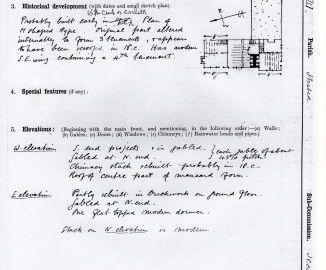 3. Historical development (with dates and small sketch plan).
Probably built early in Plan of
H shaped type. Original part altered
internally to form 3 tenements, & appears
to have been reroofed in 18 C. Has modern
S.E. wing containing a 4th tenement.
4. Special features (if any):
5. Elevations: (Beginning with the main front, and mentioning, in the following order:—(a) Walls;
(b) Gables; (c) Doors; (d) Windows; (e) Chimneys; (f) Rainwater heads and pipes.)
W. elevation S. end projects & is gabled.
Gabled at N. end.
Chimney stack rebuilt probably in 18 C.
Roof of centre part of mansard form.
E elevation Partly rebuilt in brickwork on ground floor.
Gabled at N. end.
One flat topped modern dormer.
Stack on N elevation is modern.
Parish.
Sub-Commission.